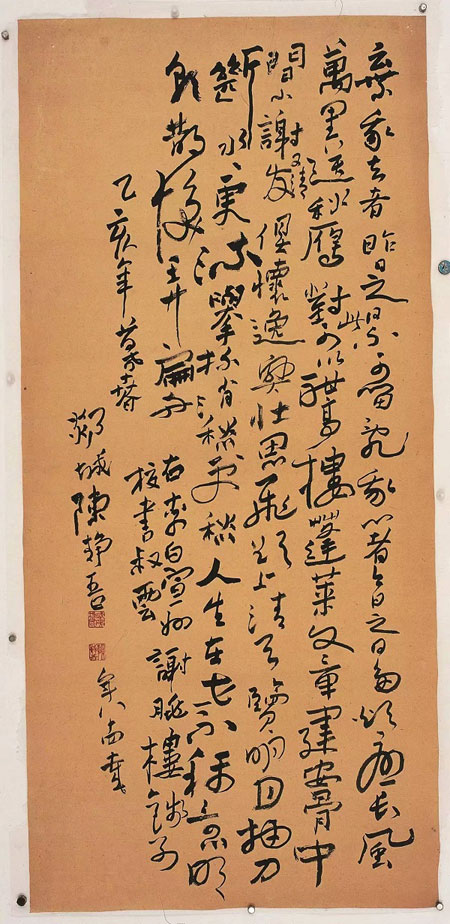 棄我去者昨日之日不可留亂我心者今日之日多煩憂長風
萬里送秋雁對此可以酣高樓蓬萊文章建安骨中
間小謝又清發俱懷逸興壯思飛欲上清天覽明月抽刀
斷水水更流舉杯消愁更愁人生在世不稱意明
朝散髮弄扁舟
右李白宣州謝朓樓餞別
校書叔雲
乙亥年暮春
郯城陳靜吾